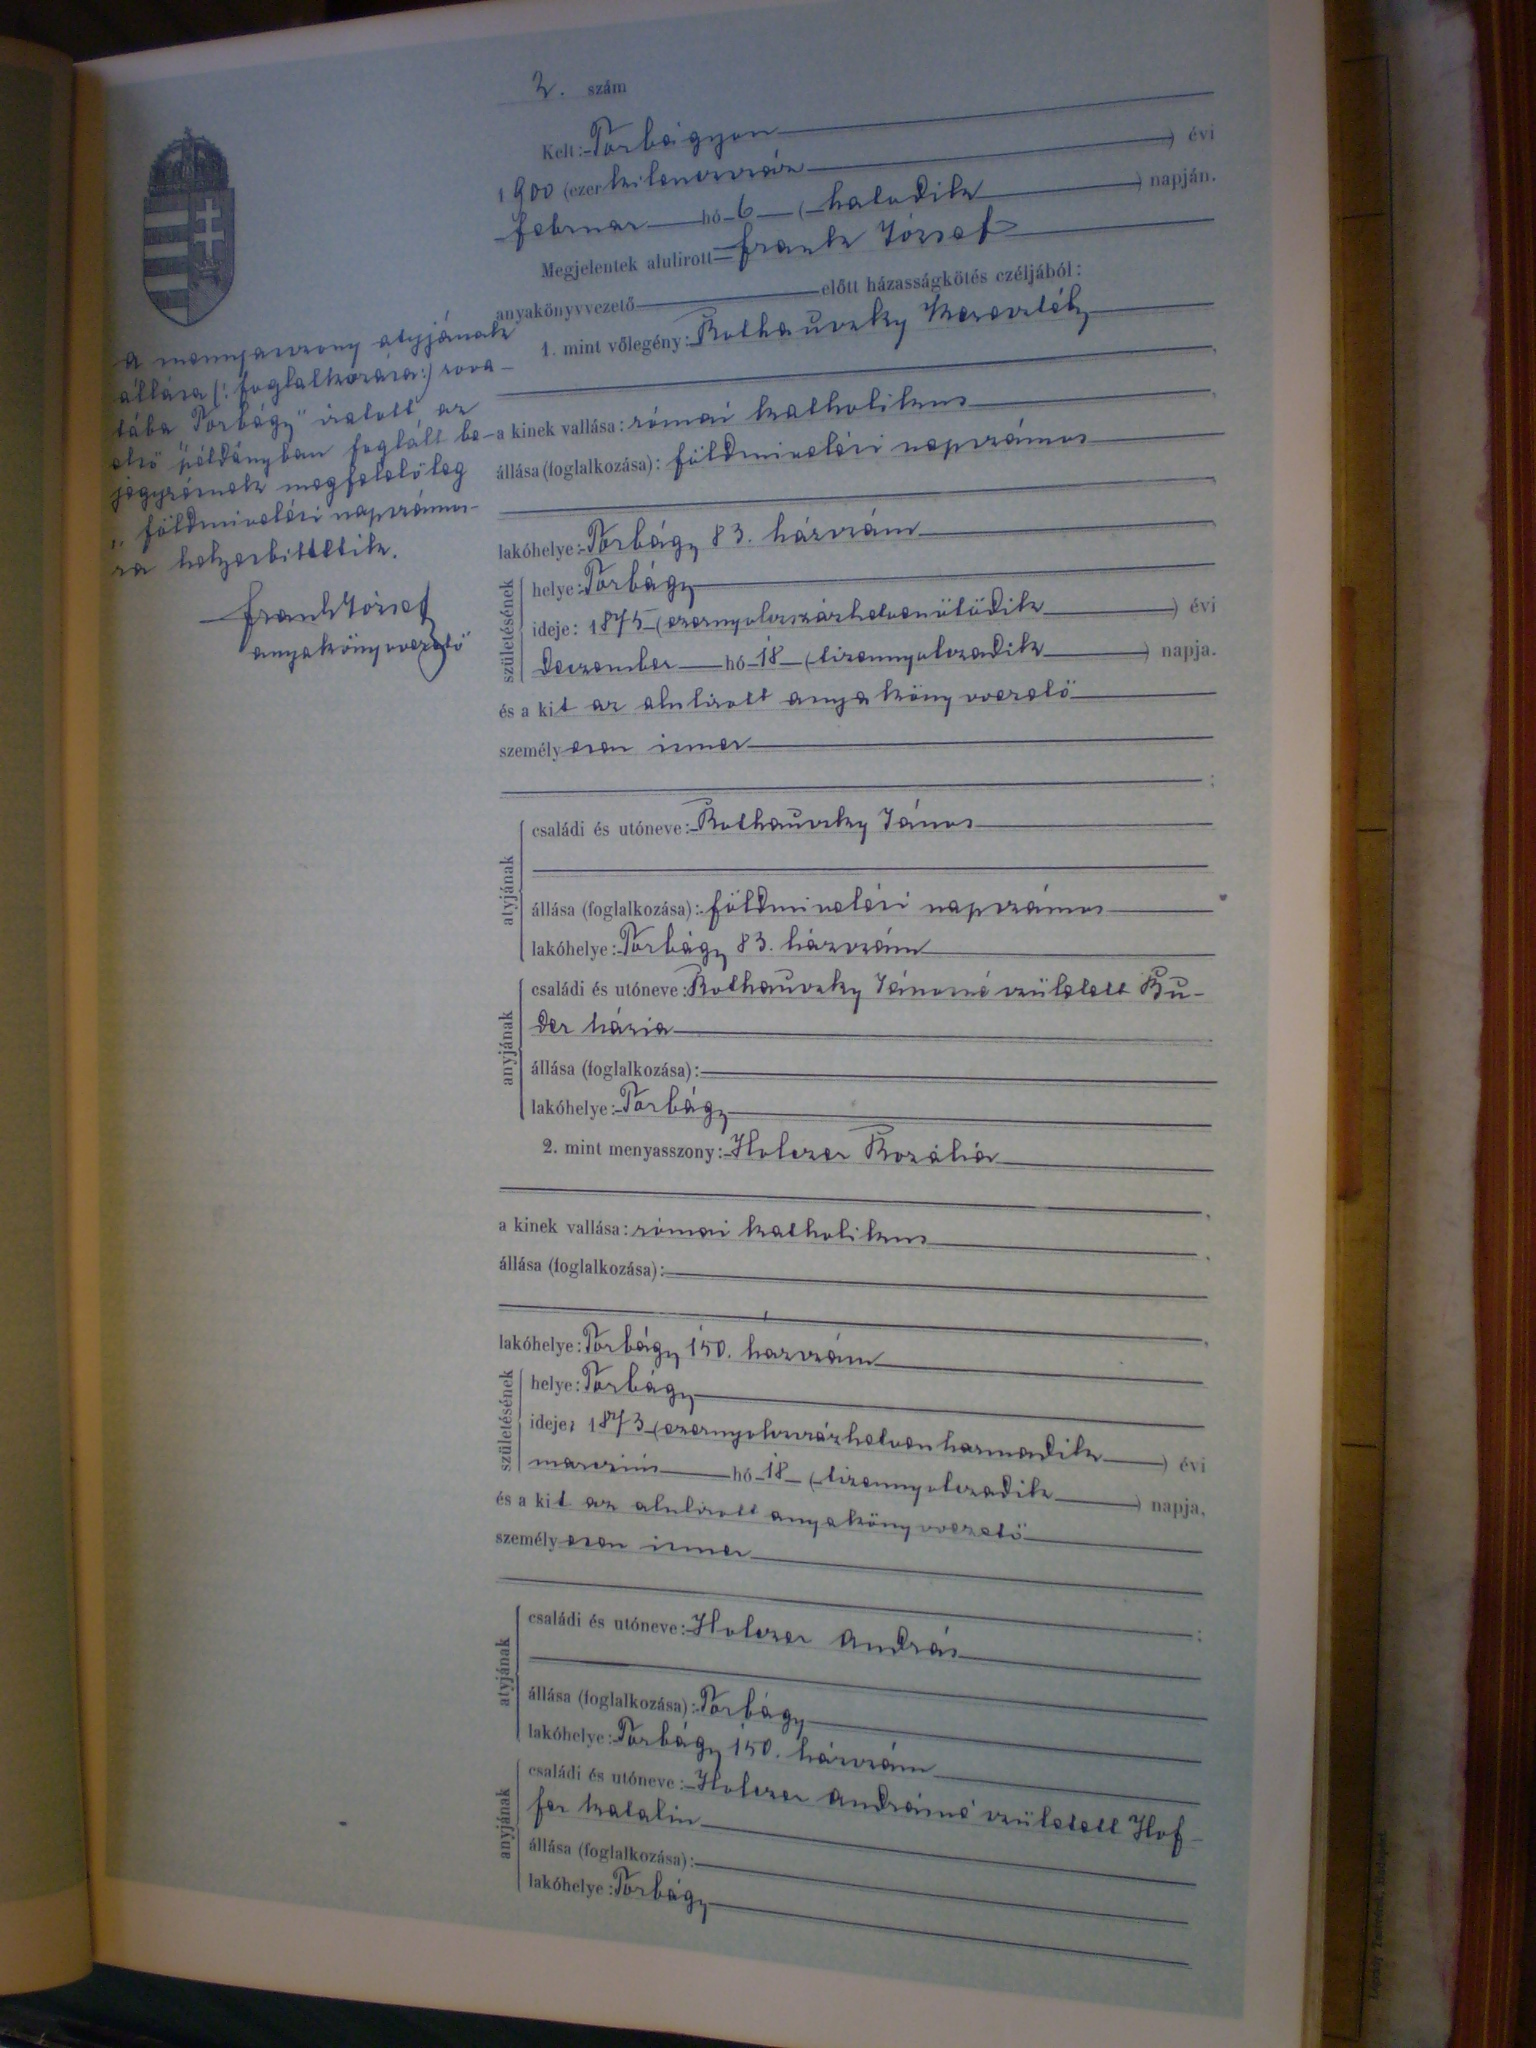 2. szám
Kelt: Torbágyon
1900 (ezer kilenczszáz ) évi
februar hó 6 (hatodik ) napján.
Megjelentek alulirott Frank József
anyakönyvvezető előtt házasságkötés czéljából:
1. mint vőlegény: Rothauszky
a kinek vallása: római katholikus
állása (foglalkozása): földmivelési napszámos
lakóhelye: Torbágy 83. házszám
születésének
helye: Torbágy
ideje: 1875 (ezernyolczszázhetvenötödik ) évi
Deczember hó 18 (tizennyolczadik ) napja.
és a kit az alulirott anyakönyvvezető
személyesen ismer
;
atyjának
családi és utóneve: Rothauszky János
állása (foglalkozása): földmivelési napszámos
lakóhelye: Torbágy 83. házszám
anyjának
családi és utóneve: Rothauszky Jánosné született
állása (foglalkozása):
lakóhelye: Torbágy
2. mint menyasszony: Holczer Rozália
a kinek vallása: római katholikus
állása (foglalkozása):
lakóhelye: Torbágy 150. házszám
születésének
helye: Torbágy
ideje: 1873 (ezernyolczszázhetvenharmadik ) évi
marczius hó 18 (tizennyolczadik ) napja,
és a kit az alulirott anyakönyvvezető
személyesen ismer
;
atyjának
családi és utóneve: Holczer András
állása (foglalkozása): Torbágy
lakóhelye: Torbágy 150. házszám
anyjának
családi és utóneve: Holczer Andrásné született Hof-
fer Katalin
állása (foglalkozása):
lakóhelye: Torbágy
A mennyasszony atyjának
állása (: foglalkozása:) rova-
tába "Torbágy" iratott az
első példányban foglalt be-
jegyzésnek megfelelőleg
"földmivelési napszámos-
ra helyesbittetik.
Frank József
anyakönyvvezető